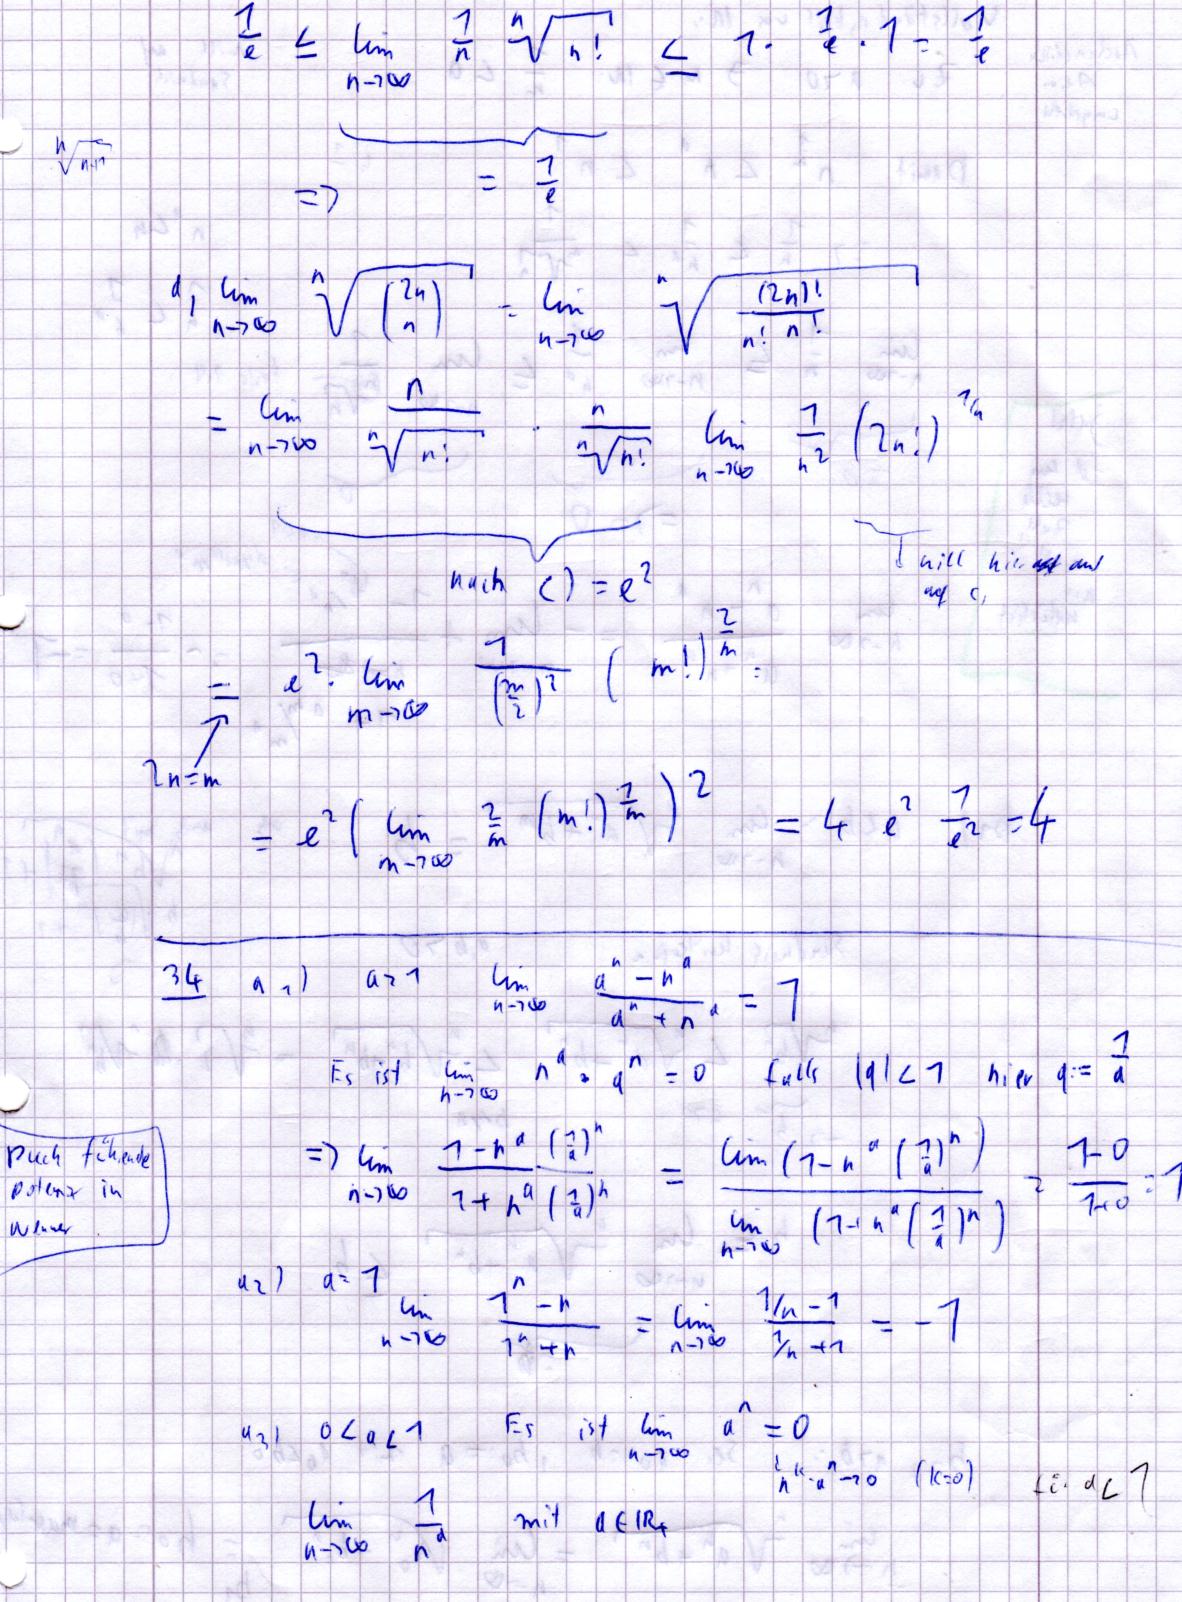 1/e ≤ lim n→∞ 1/n ⁿ√(n!) ≤ 1 · 1/e · 1 = 1/e
ⁿ√
=> = 1/e
d, lim n→∞ ⁿ√(2n n) = lim n→∞ ⁿ√((2n)! / (n! n!))
= lim n→∞ n/ⁿ√(n!) · n/ⁿ√(n!) lim n→∞ 1/n² (2n!)^(1/n)
nach c) = e²
will
2n=m
= e² · lim m→∞ 1/(m/2)² (m!)^(2/m) =
= e² (lim m→∞ 2/m (m!)^(1/m))² = 4 e² 1/e² = 4
34 a 1) a>1 lim n→∞ (aⁿ - nᵃ)/(aⁿ + nᵃ) = 1
Es ist lim n→∞ nᵃ · qⁿ = 0 falls |q| < 1 hier q := 1/a
Durch führende
Potenz in
Nenner
=> lim n→∞ (1 - nᵃ (1/a)ⁿ)/(1 + nᵃ (1/a)ⁿ) = lim (1 - nᵃ (1/a)ⁿ) / lim n→∞ (1 + nᵃ (1/a)ⁿ) = (1-0)/(1+0) = 1
a2) a = 1 lim n→∞ (1ⁿ - n)/(1ⁿ + n) = lim n→∞ (1/n - 1)/(1/n + 1) = -1
a3) 0 < a < 1 Es ist lim n→∞ aⁿ = 0
nᵏ · aⁿ → 0 (k=0) für a < 1
lim n→∞ 1/nᵃ mit a ∈ ℝ₊